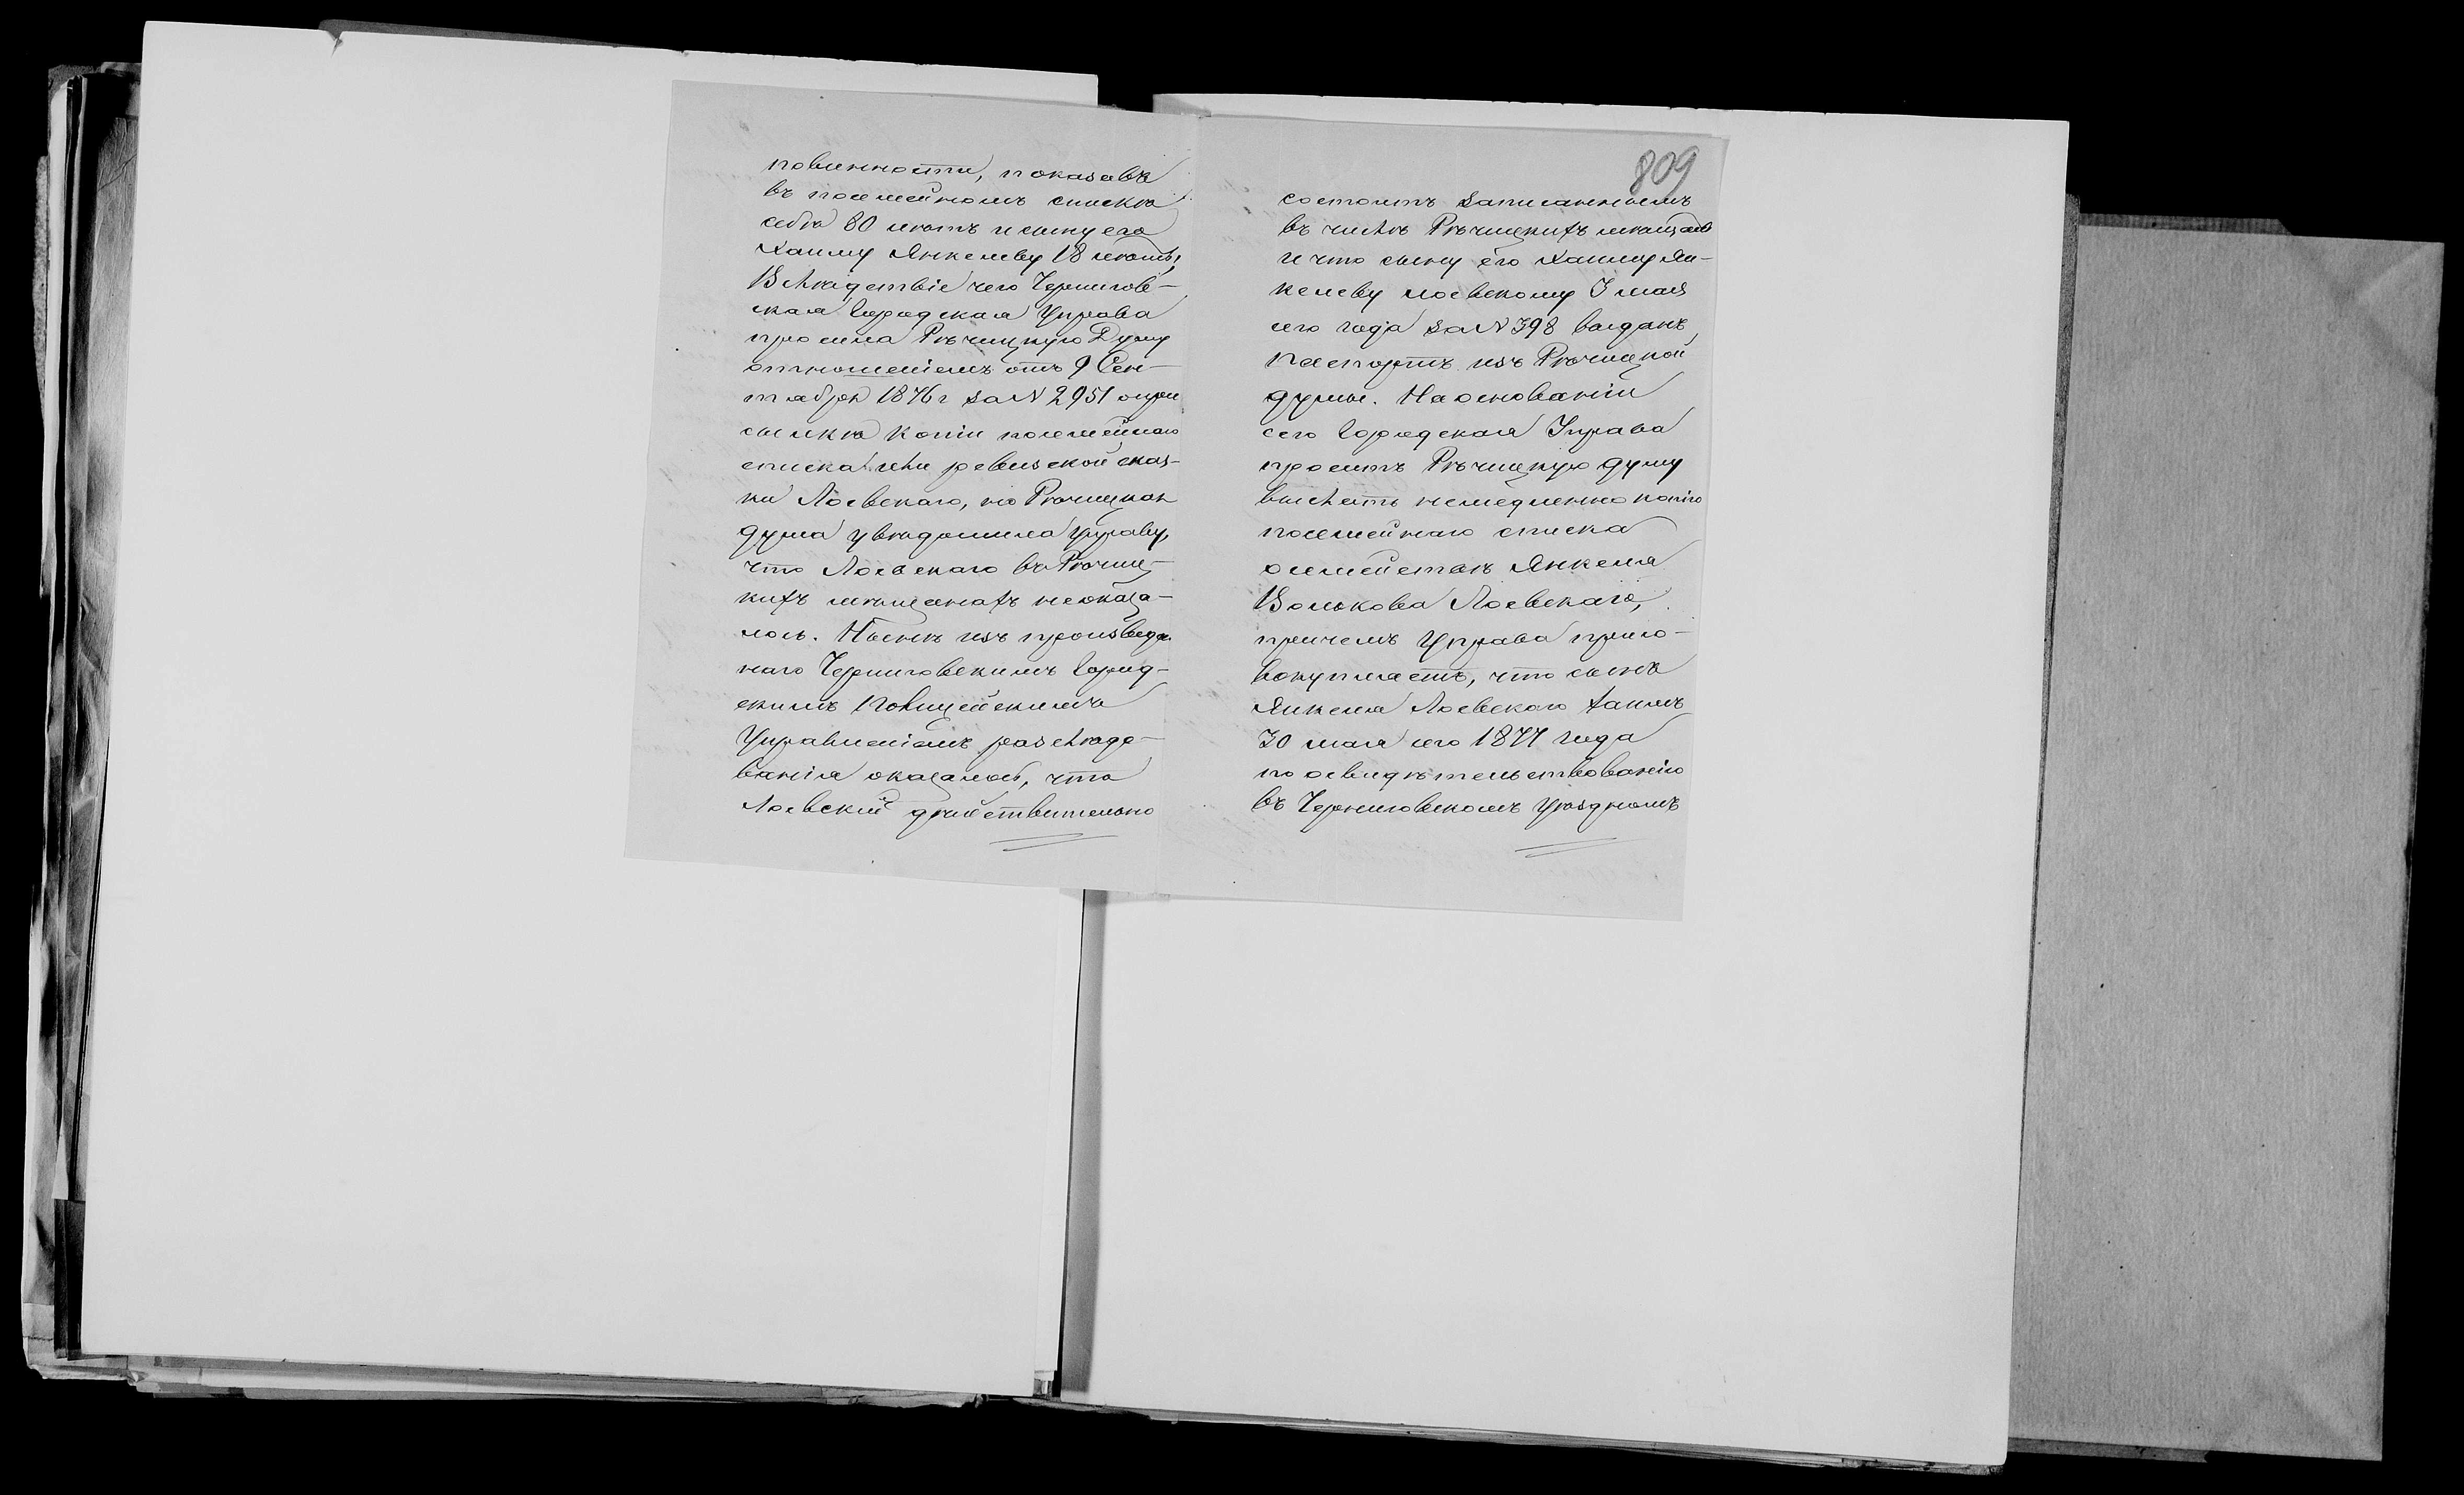 повинности, показавъ
въ посемейномъ спискѣ
себѣ 80 лѣтъ и сыну его
Хаиму Янкелеву 18 лѣтъ,
Вслѣдствіе чего Чернигов-
ская Городская Управа
просила Рѣчицкую Думу
отношеніемъ отъ 9 Сен-
тября 1876 г за N 2951 о при
сылкѣ копіи посемейнаго
списка или ревизской сказ-
ки Лоевскаго, но Рѣчицкая
дума увѣдомила Управу,
что Лоевскаго въ Рѣчиц-
кихъ мѣщанахъ не оказа-
лось. Нынѣ изъ произведен
наго Черниговскимъ Город-
скимъ Полицейскимъ
Управленіемъ разслѣдо-
ванія оказалось, что
Лоевский дѣйствительно
809
состоитъ записаннымъ
въ числѣ Рѣчицкихъ мѣщанъ
и что сыну его Хаиму Ян-
келеву Лоевскому 3 мая
сего года за N 398 выданъ
паспортъ изъ Рѣчицкой
думы. На основаніи
сего Городская Управа
проситъ Рѣчицкую думу
выслать немедленно копію
посемейнаго списка
о семействѣ Янкеля
Волькова Лоевскаго,
причемъ Управа присо-
вокупляетъ, что сынъ
Янкеля Лоевскаго Хаимъ
30 мая сего 1877 года
по освидѣтельствованію
въ Черниговскомъ Уѣздномъ